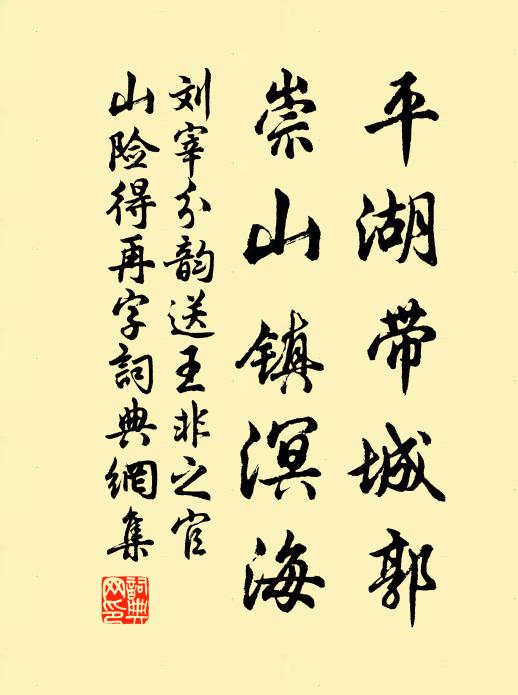 平湖带城郭
崇山镇溟海
刘宰分韵送王非之官
山险得再字詞典網集